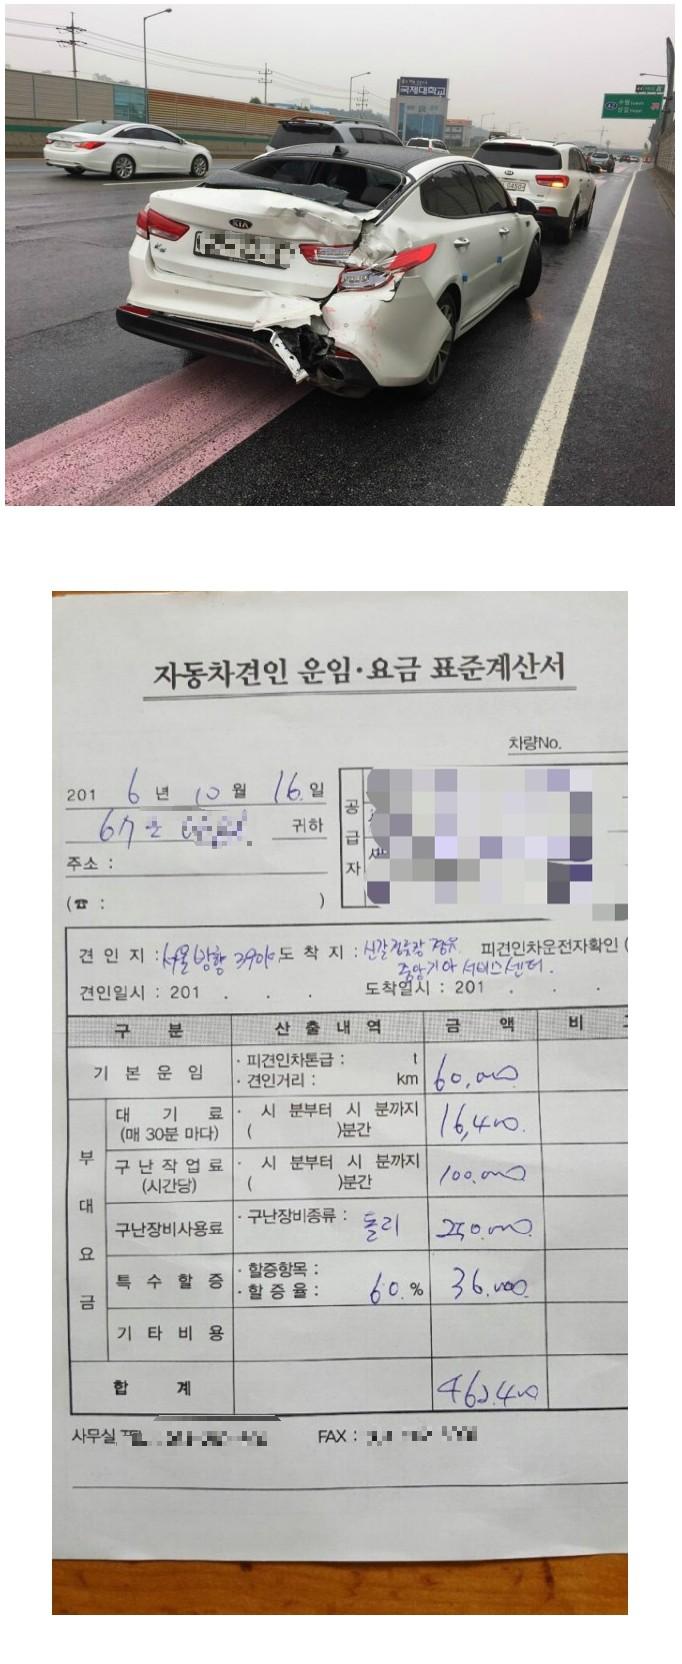 국제대학교
수원
신갈
KIA
K5
자동차견인 운임·요금 표준계산서
차량No.
201 6 년 10 월 16. 일
귀하
주소 :
(☎ : )
공급자
견 인 지 : 서울방향 390k 도 착 지 : 신갈정류장 경유. 피견인차운전자확인 (
중앙기아 서비스센터.
견인일시 : 201 . . . 도착일시 : 201 . . .
구 분 산 출 내 역 금 액 비
기 본 운 임 · 피견인차톤급 : t
· 견인거리 : km 60,000
부대요금
대 기 료 · 시 분부터 시 분까지
(매 30분 마다) ( )분간 16,400.
구 난 작 업 료 · 시 분부터 시 분까지
(시간당) ( )분간 100.000
구난장비사용료 · 구난장비종류 : 돌리 250.000
특 수 할 증 · 할증항목 :
· 할 증 율 : 60. % 36.000
기 타 비 용
합 계 462.400
사무실 FAX :